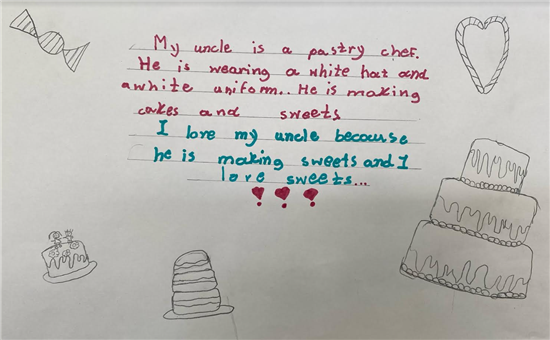 My uncle is a pastry chef.
He is wearing a white hat and
awhite uniform.. He is making
cakes and sweets
I love my uncle becouse
he is making sweets and I
love sweets...